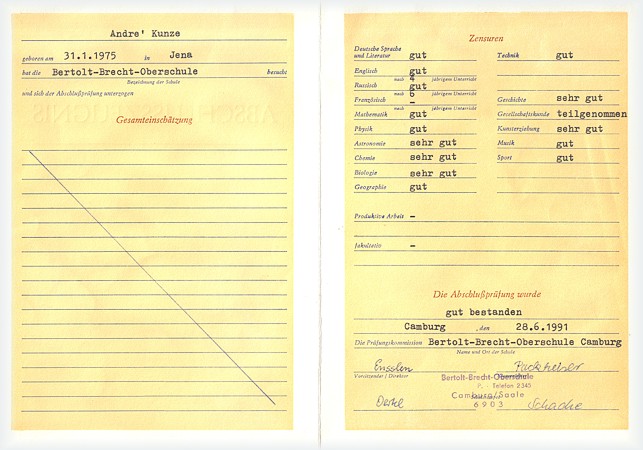 Andre' Kunze
geboren am 31.1.1975 in Jena
hat die Bertolt-Brecht-Oberschule besucht
Bezeichnung der Schule
und sich der Abschlußprüfung unterzogen
Gesamteinschätzung
Zensuren
Deutsche Sprache
und Literatur gut
Englisch gut
nach 4 jährigem Unterricht
Russisch gut
nach 6 jährigem Unterricht
Französisch –
nach jährigem Unterricht
Mathematik gut
Physik gut
Astronomie sehr gut
Chemie sehr gut
Biologie sehr gut
Geographie gut
Technik gut
Geschichte sehr gut
Gesellschaftskunde teilgenommen
Kunsterziehung sehr gut
Musik gut
Sport gut
Produktive Arbeit –
fakultativ –
Die Abschlußprüfung wurde
gut bestanden
Camburg , den 28.6.1991
Die Prüfungskommission Bertolt-Brecht-Oberschule Camburg
Name und Ort der Schule
Vorsitzender / Direktor
Bertolt-Brecht-Oberschule
P. - Telefon 2345
Camburg/Saale
6903